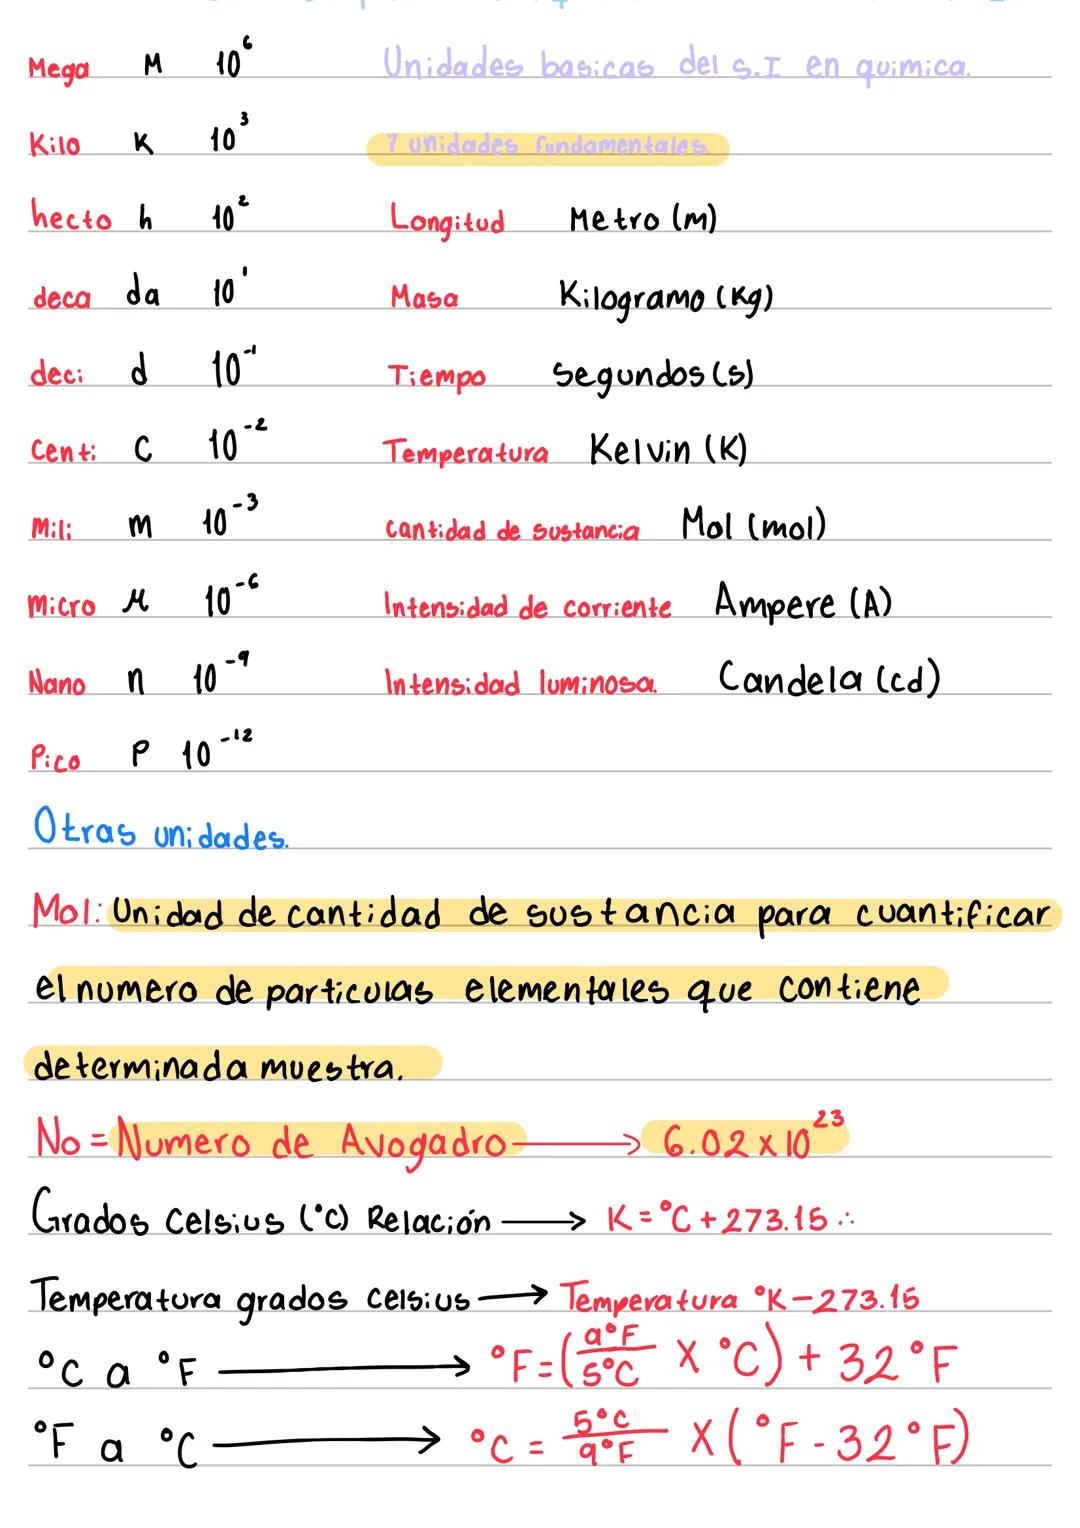 Mega M 10⁶ Unidades basicas del S.I en quimica.
Kilo K 10³ 7 unidades fundamentales.
hecto h 10² Longitud Metro (m)
deca da 10¹ Masa Kilogramo (Kg)
deci d 10⁻¹ Tiempo Segundos (s)
Centi C 10⁻² Temperatura Kelvin (K)
Mili m 10⁻³ cantidad de sustancia Mol (mol)
micro μ 10⁻⁶ Intensidad de corriente Ampere (A)
Nano n 10⁻⁹ Intensidad luminosa. Candela (cd)
Pico P 10⁻¹²
Otras unidades.
Mol: Unidad de cantidad de sustancia para cuantificar
el numero de particulas elementales que contiene
determinada muestra.
No = Numero de Avogadro → 6.02 x 10²³
Grados Celsius (°C) Relación → K = °C + 273.15 ∴
Temperatura grados celsius → Temperatura °K − 273.15
°C a °F → °F = (9°F/5°C X °C) + 32°F
°F a °C → °C = 5°C/9°F X (°F - 32°F)